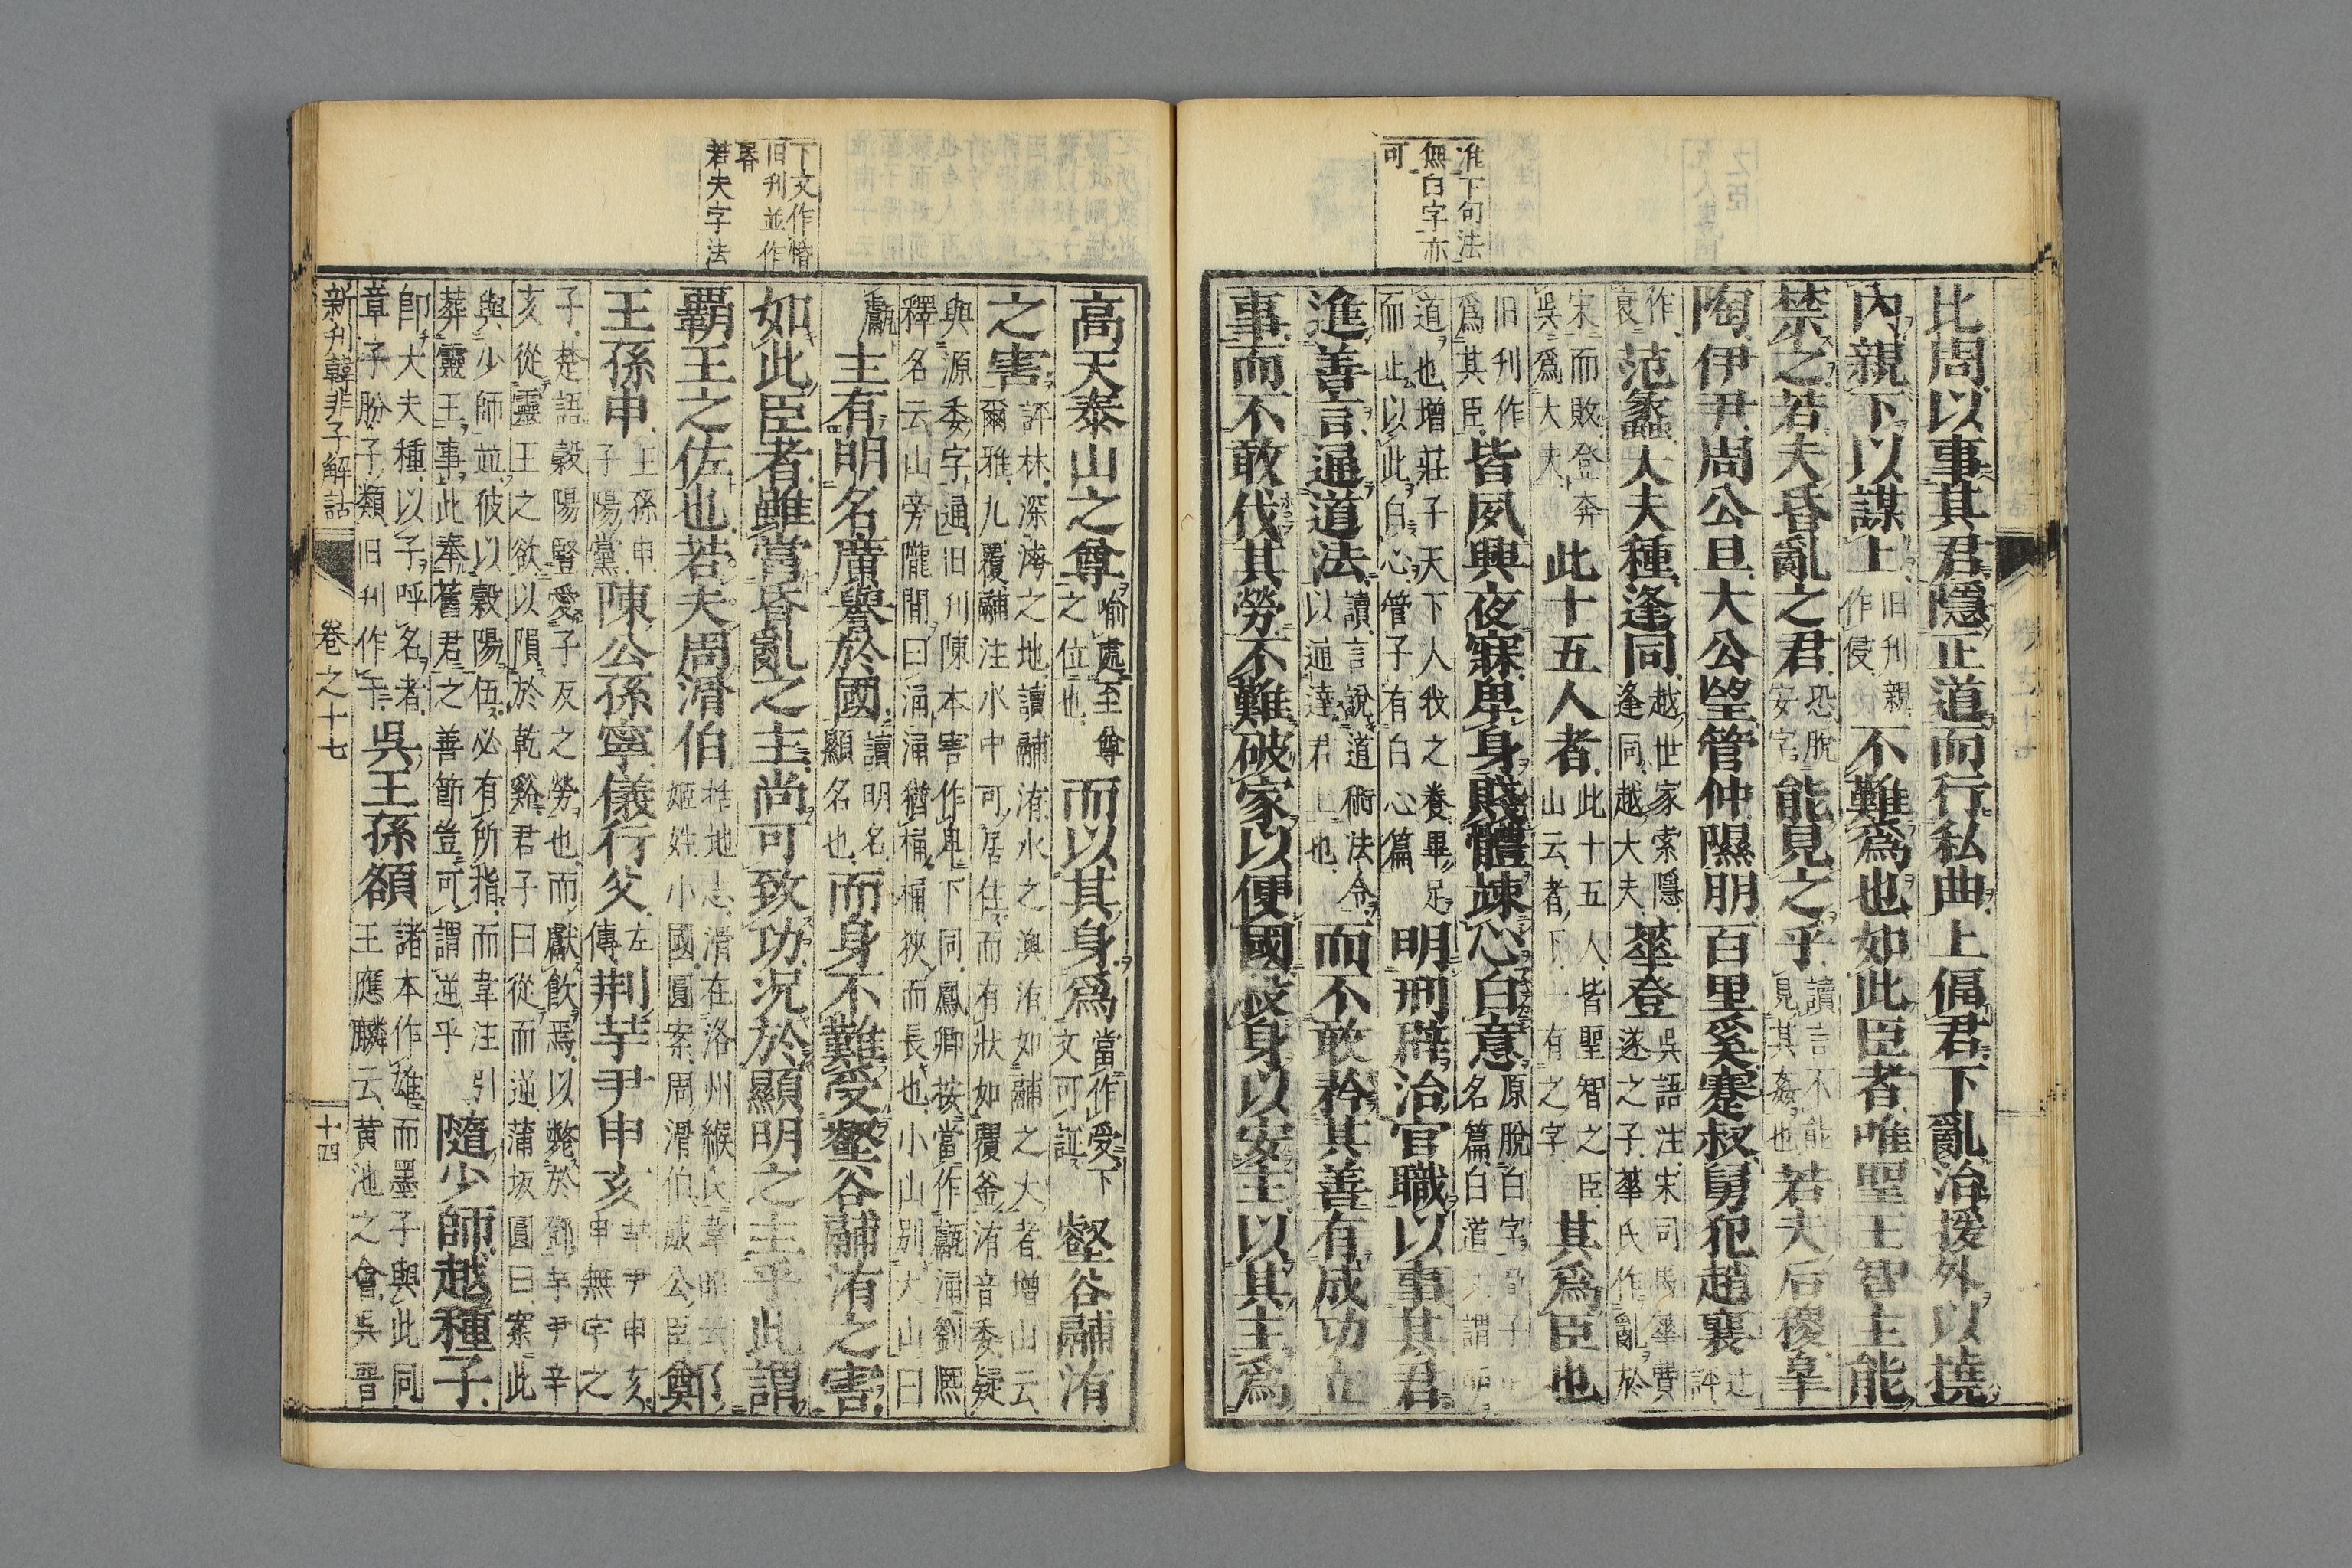 准下句法
無白字亦
可
比周以事其君隱正道而行私曲上偪君下亂治援外以撓
內親下以謀上旧刊親作侵不難爲也如此臣者唯聖王智主能
禁之若夫昏亂之君恐脫安字能見之乎讀言不能見其姦也若夫后稷皐
陶伊尹周公旦大公望管仲隰朋百里奚蹇叔舅犯趙襄
作衰范蠡大夫種逢同越世家索隱逢同越大夫華登吳語注宋司馬華費遂之子華氏作亂於
宋而敗登奔吳爲大夫此十五人者此十五人皆聖智之臣山云者下一有之字其爲臣也
旧刊作爲其臣皆夙興夜寐卑身賤體竦心白意原脫白字名篇白道
道也增莊子天下人我之養畢足而止以此白心管子有白心篇明刑辟治官職以事其君
進善言通道法讀言說道術法令以通達君上也而不敢矜其善有成功立
事而不敢伐其勞不難破家以便國殺身以安主以其主爲
下文作惛
旧刊並作
㬰
若夫字法
高天泰山之尊喻處至尊之位也而以其身爲當作受下文可証壑谷鬴洧
之害評林深濬之地讀鬴洧水之澳洧如鬴之大者增山云爾雅九覆鬴注水中可居住而有狀如覆釜洧音委疑
與源委字通旧刊陳本害作卑下同鳳卿按當作甗涌劉熙釋名云山旁隴間曰涌涌猶桶桶狹而長也小山別大山曰
甗主有明名廣譽於國讀明名顯名也而身不難受壑谷鬴洧之害
如此臣者雖當昏亂之主尚可致功況於顯明之主乎此謂
覇王之佐也若夫周滑伯括地志滑在洛州緱氏姬姓小國圓案周滑伯威公臣鄭
王孫申王孫申子陽黨陳公孫寧儀行父左傳荆芋尹申亥芋尹申亥申無宇之
子楚語穀陽豎愛子反之勞也而獻飲焉以斃於鄢芋尹辛亥從靈王之欲以隕於乾谿君子曰從而逆蒲坂圓曰案此
與少師並彼以穀陽伍必有所指而韋注引葬靈王事此奉舊君之善節豈可謂逆乎隨少師越種子
卽大夫種以子呼名者諸本作雄而墨子與此同章子肦子類旧刊作午吳王孫頟王應麟云黄池之會吳晋
新刊韓非子解詁
卷之十七
十四